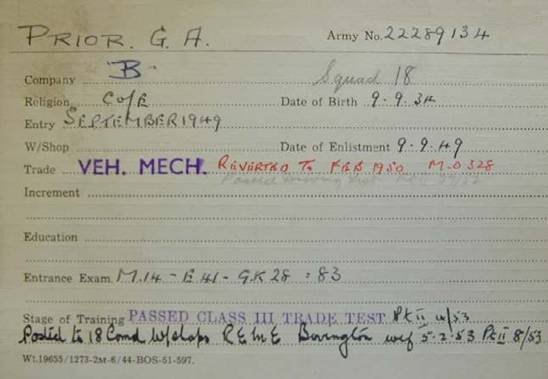 PRIOR. G. A. Army No. 22289134
Company B Squad 18
Religion C of E Date of Birth 9-9.34
Entry SEPTEMBER 1949
W/Shop Date of Enlistment 9.9.49
Trade VEH. MECH. REVERTED TO FEB 1950 M.O 328
Passed
Increment
Education
Entrance Exam M.14 - E 41 - G.K 28 = 83
Stage of Training PASSED CLASS III TRADE TEST Pt II 4/53
Posted to 18 Comd W/shops R E M E Bovington wef 5-2-53 Pt II 8/53
Wt.19655/1273-2M-8/44-BOS-51-597.